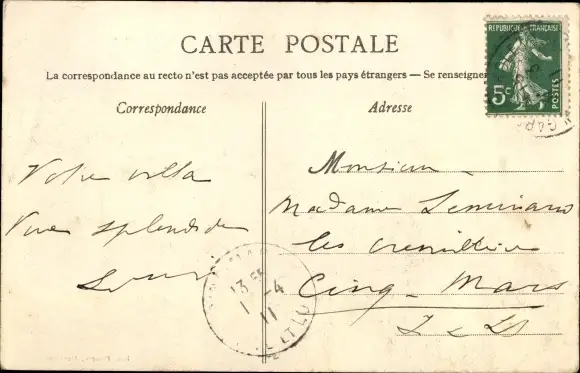 CARTE POSTALE
La correspondance au recto n'est pas acceptée par tous les pays étrangers — Se renseigner
REPUBLIQUE FRANÇAISE
5c
POSTES
Correspondance
Adresse
Votre villa
Vue splendide
Monsieur
Madame
les
Cinq-Mars
I & L
13
1 -4
11
ET L